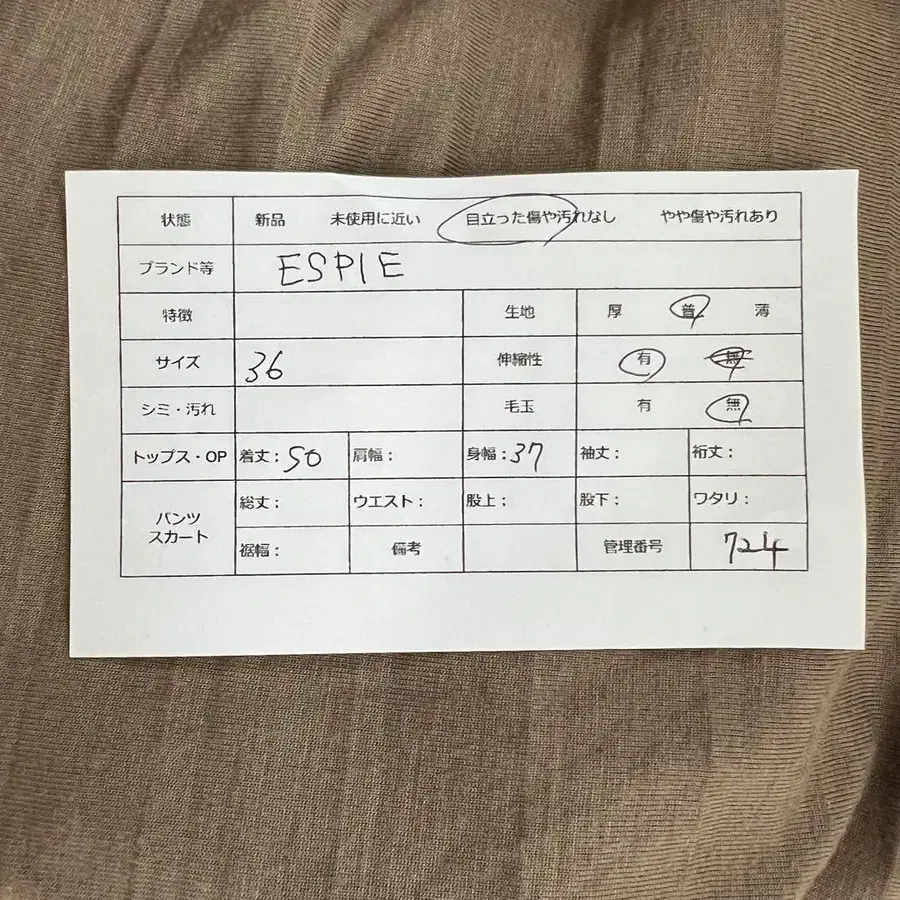 状態 新品 未使用に近い 目立った傷や汚れなし やや傷や汚れあり
ブランド等 ESPIE
特徴 生地 厚 普 薄
サイズ 36 伸縮性 有 無
シミ・汚れ 毛玉 有 無
トップス・OP 着丈：50 肩幅： 身幅：37 袖丈： 裄丈：
パンツ スカート 総丈： ウエスト： 股上： 股下： ワタリ：
裾幅： 備考 管理番号 724